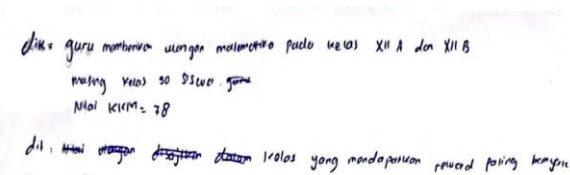 dik : guru memberikan ulangan matematika pada kelas XII A dan XII B
masing kelas 30 siswa. guru
Nilai KKM = 78
dit : Nilai ulangan disajikan dalam kelas yang mendapatkan reward paling banyak